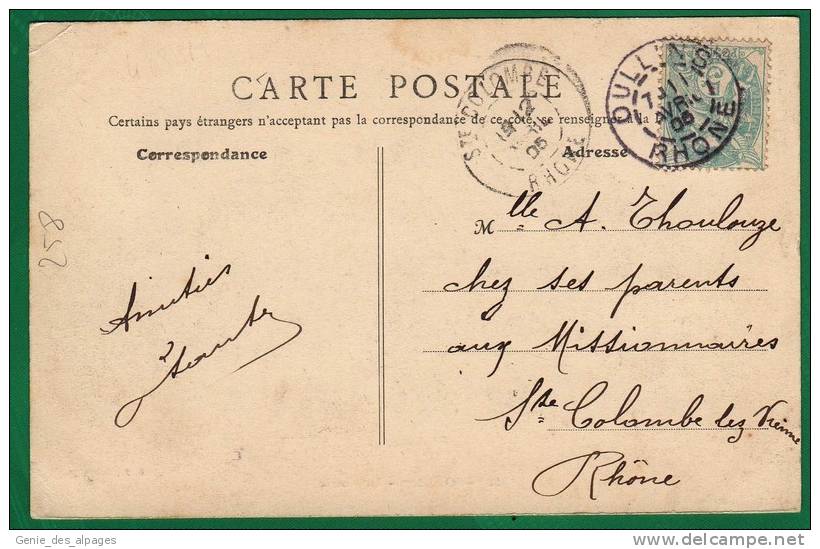 CARTE POSTALE
Certains pays étrangers n'acceptant pas la correspondance de ce côté, se renseigner à la
Correspondance
Adresse
STE COLOMBE
RHONE
OULLINS
RHONE
Mlle A. Thoulouze
chez ses parents
aux Missionnaires
Ste Colombe lez Vienne
Rhône
Amitiés
258
Genie_des_alpages
delcampe.net